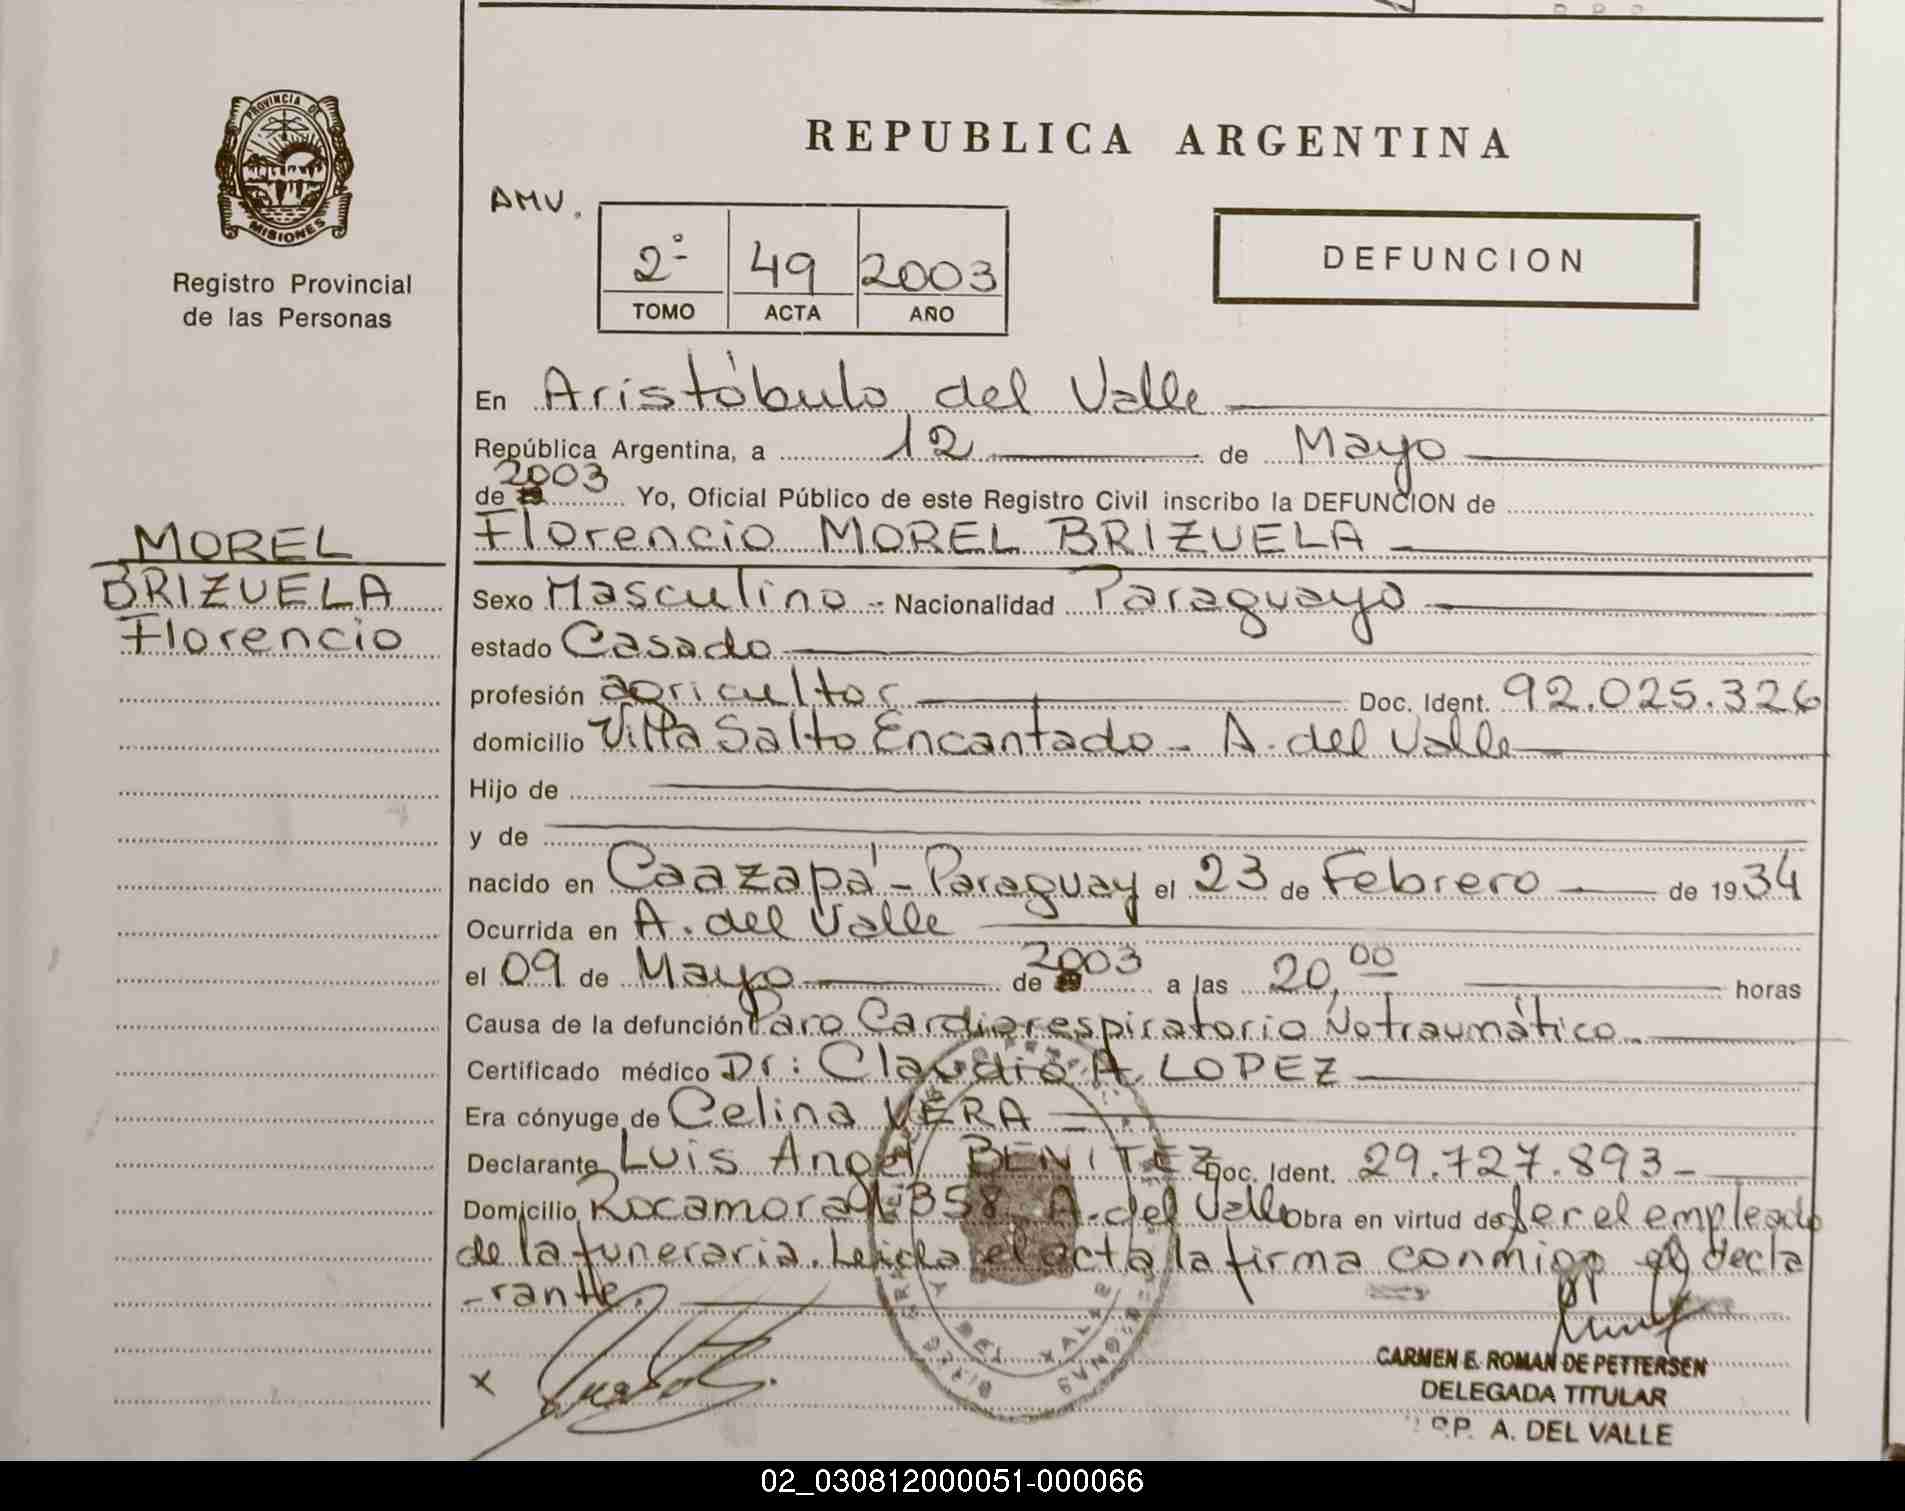 PROVINCIA DE
MISIONES
Registro Provincial
de las Personas
REPUBLICA ARGENTINA
AMV.
2º 49 2003
TOMO ACTA AÑO
DEFUNCION
En Aristóbulo del Valle
República Argentina, a 12 de Mayo
de 2003 Yo, Oficial Público de este Registro Civil inscribo la DEFUNCION de
MOREL
BRIZUELA
Florencio
Florencio MOREL BRIZUELA
Sexo Masculino Nacionalidad Paraguayo
estado Casado
profesión agricultor Doc. Ident. 92.025.326
domicilio Villa Salto Encantado - A. del Valle
Hijo de
y de
nacido en Caazapá - Paraguay el 23 de Febrero de 1934
Ocurrida en A. del Valle
el 09 de Mayo de 2003 a las 20,00 horas
Causa de la defunción Paro Cardiorespiratorio No traumático.
Certificado médico Dr: Claudio A. LOPEZ
Era cónyuge de Celina VERA
Declarante Luis Angel BENITEZ Doc. Ident. 29.727.893-
Domicilio Rocamora 358 A. del Valle Obra en virtud de ser el empleado
de la funeraria. Leida el acta la firma conmigo el decla
-rante.
x
CARMEN E. ROMAN DE PETTERSEN
DELEGADA TITULAR
P.P. A. DEL VALLE
02_030812000051-000066